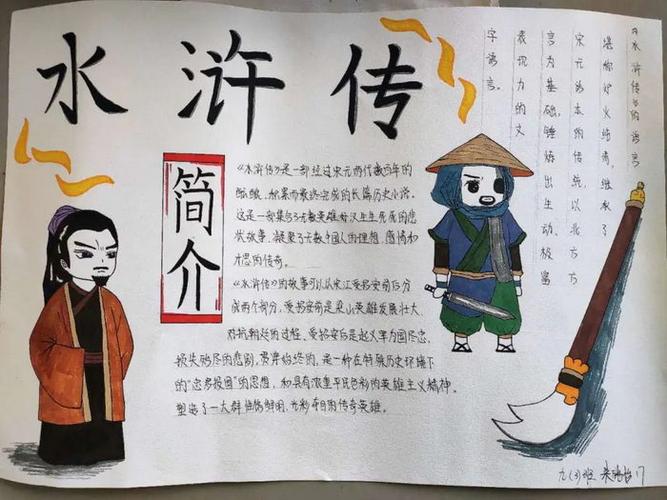 水浒传
简介
《水浒传》是一部经过宋元两代数百年的
酝酿、积累而最终完成的长篇历史小说。
这是一部集合了无数英雄好汉生生死死的悲
状故事，凝聚了无数中国人的理想、感情和
才思的传奇。
《水浒传》的故事可以从宋江受招安前后分
成两个部分，受招安前是梁山英雄发展壮大、
对抗朝廷的过程、受招安后是起义军为国尽忠、
损失殆尽的悲剧。贯穿始终的，是一种在特殊历史环境下
的"忠多报国"的思想，和具有浓重平民色彩的英雄主义精神。
塑造了一大群性格鲜明、光彩夺目的传奇英雄。
《水浒传》的语言
堪称炉火纯青，继承了
宋元话本的传统，以北方方
言为基础，锤炼出生动、极富
表现力的文
字语言。
九(3)班